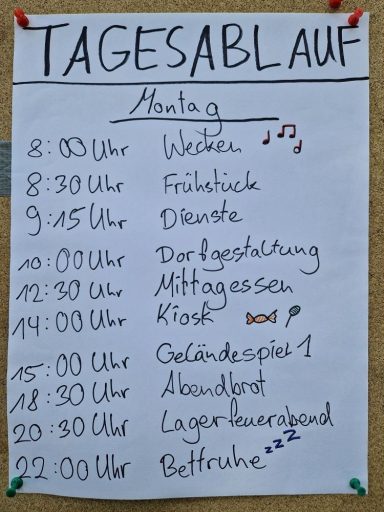 TAGESABLAUF
Montag
8:00 Uhr Wecken
8:30 Uhr Frühstück
9:15 Uhr Dienste
10:00 Uhr Dorfgestaltung
12:30 Uhr Mittagessen
14:00 Uhr Kiosk
15:00 Uhr Geländespiel 1
18:30 Uhr Abendbrot
20:30 Uhr Lagerfeuerabend
22:00 Uhr Bettruhe zzz